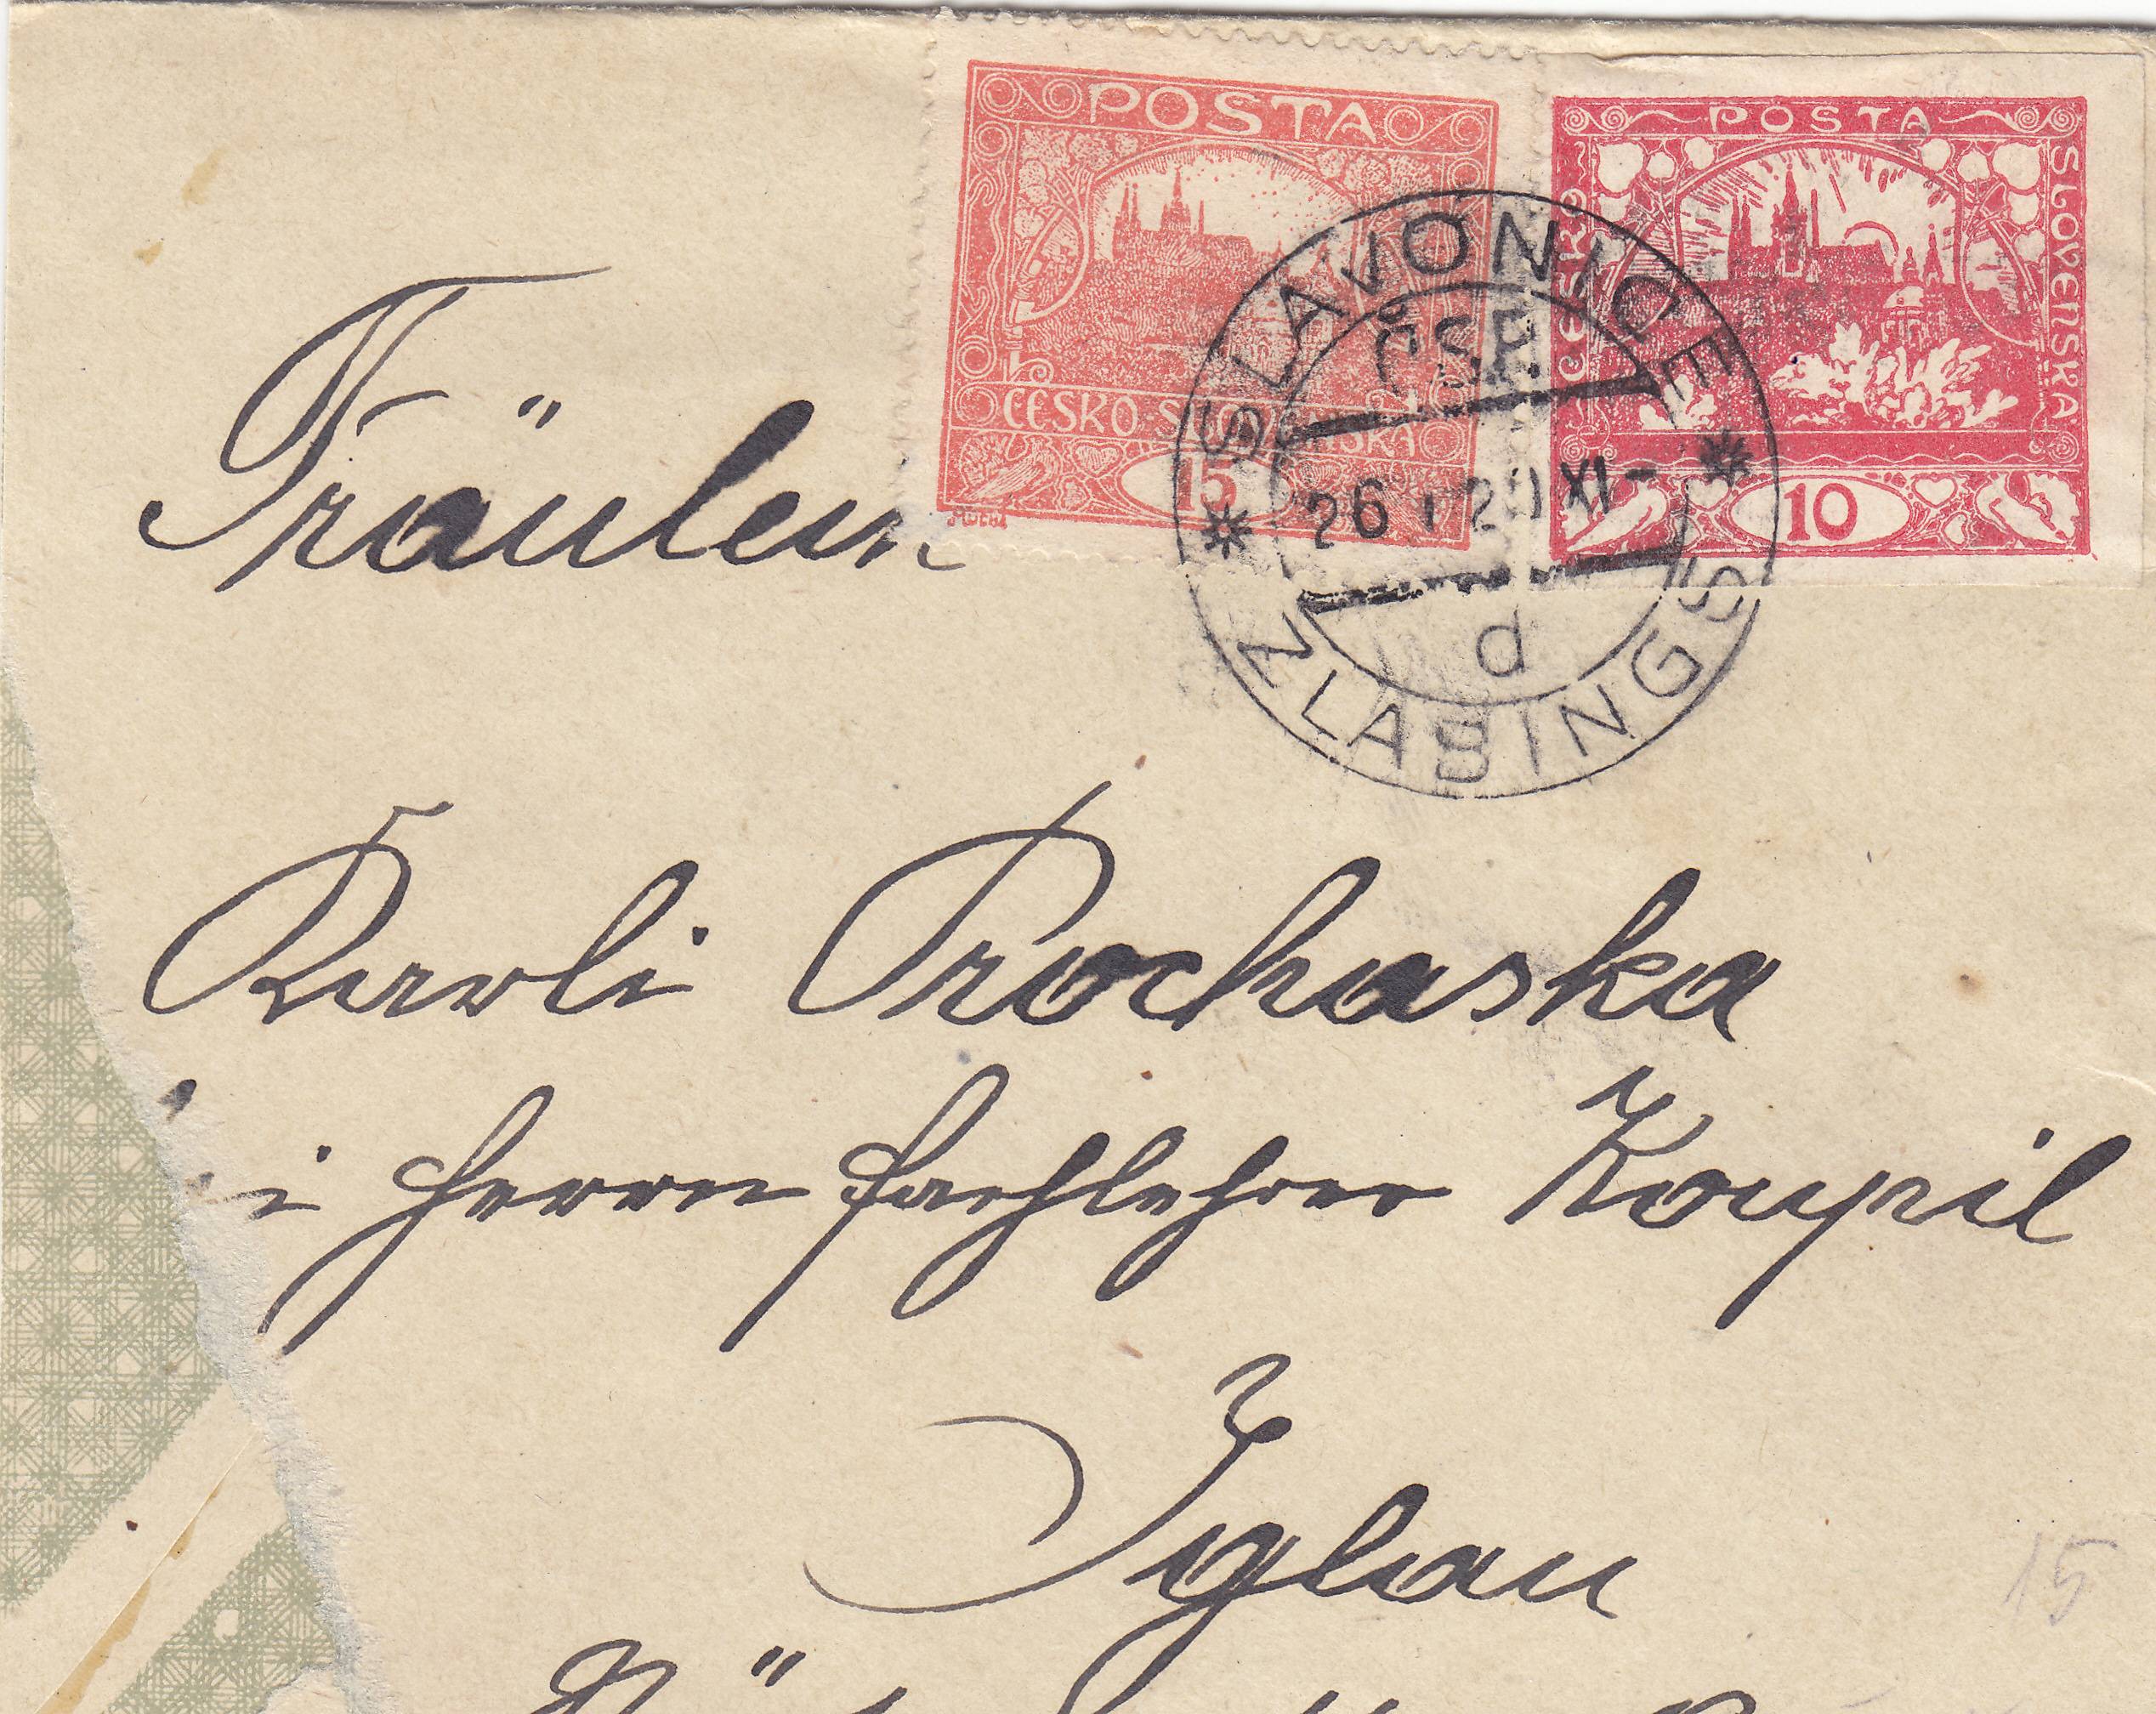 POSTA
ČESKO-SLOVENSKÁ
15
MUCHA
POSTA
ČESKO
SLOVENSKÁ
10
SLAVONICE
ČSR
26 XI
d
ZLABINGS
Fräulein
Karli Prochaska
bei Herrn Fachlehrer Koupil
Iglau
15